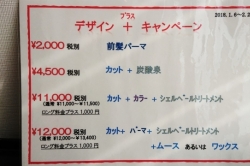 プラス
デザイン + キャンペーン
2018.1.6～2.2
¥2,000 税別 前髪パーマ
¥4,500 税別 カット + 炭酸泉
¥11,000 税別 カット + カラー + シェルペールトリートメント
(通常 ¥12,000～¥11,500)
ロング料金プラス 1,000 円
¥12,000 税別 カット + パーマ + シェルペールトリートメント
(通常 ¥12,000～¥13,400)
ロング料金プラス 1,000 円
+ムース あるいは ワックス